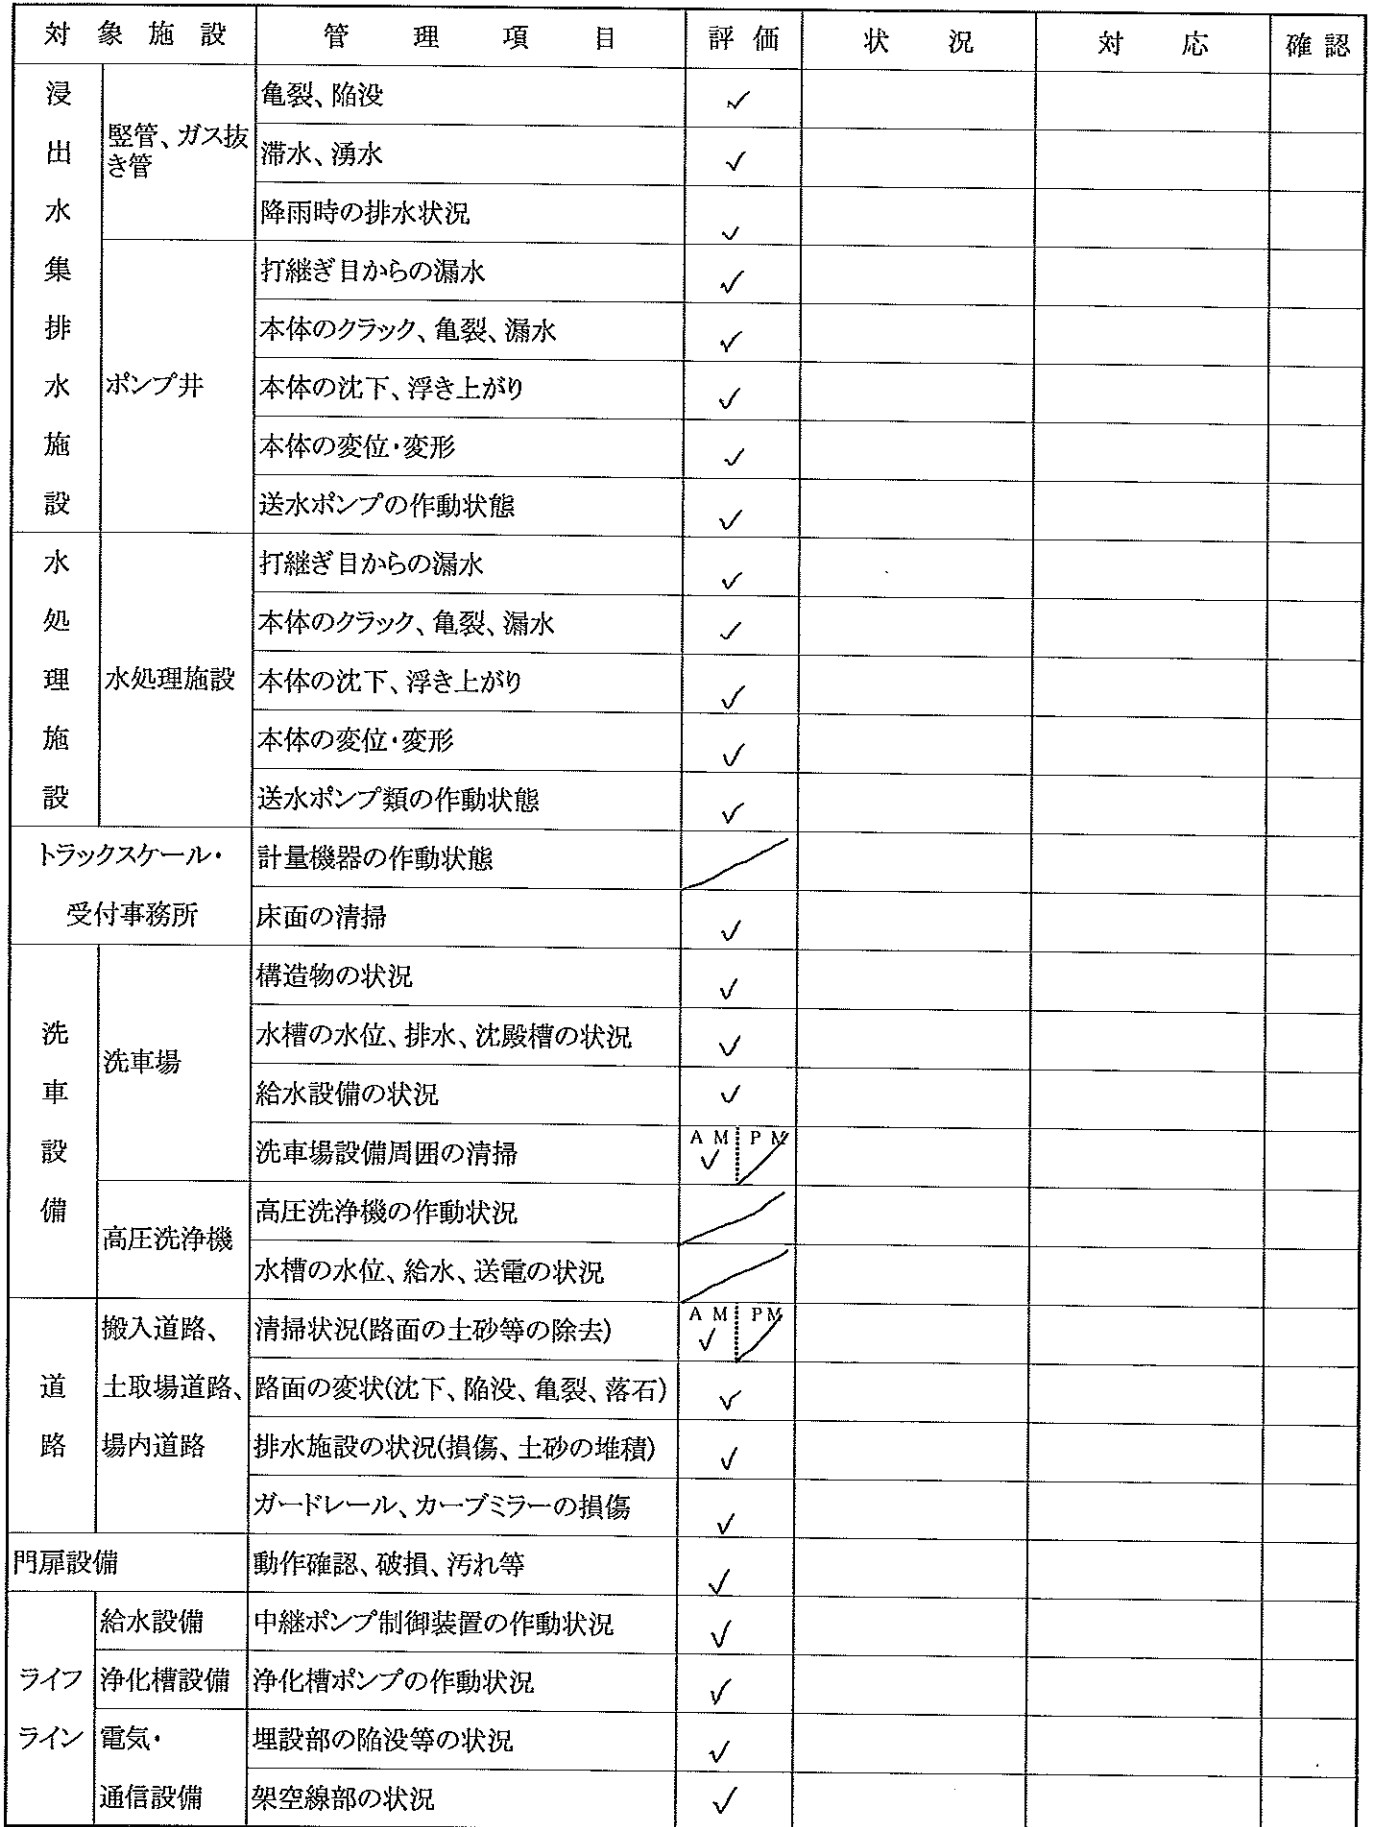 対象施設 管理項目 評価 状況 対応 確認
浸出水集排水施設 竪管、ガス抜き管 亀裂、陥没 ✓
滞水、湧水 ✓
降雨時の排水状況 ✓
ポンプ井 打継ぎ目からの漏水 ✓
本体のクラック、亀裂、漏水 ✓
本体の沈下、浮き上がり ✓
本体の変位・変形 ✓
送水ポンプの作動状態 ✓
水処理施設 水処理施設 打継ぎ目からの漏水 ✓
本体のクラック、亀裂、漏水 ✓
本体の沈下、浮き上がり ✓
本体の変位・変形 ✓
送水ポンプ類の作動状態 ✓
トラックスケール・ 計量機器の作動状態
受付事務所 床面の清掃 ✓
洗車設備 洗車場 構造物の状況 ✓
水槽の水位、排水、沈殿槽の状況 ✓
給水設備の状況 ✓
洗車場設備周囲の清掃 AM ✓ PM
高圧洗浄機 高圧洗浄機の作動状況
水槽の水位、給水、送電の状況
道路 搬入道路、 清掃状況(路面の土砂等の除去) AM ✓ PM
土取場道路、 路面の変状(沈下、陥没、亀裂、落石) ✓
場内道路 排水施設の状況(損傷、土砂の堆積) ✓
ガードレール、カーブミラーの損傷 ✓
門扉設備 動作確認、破損、汚れ等 ✓
ライフライン 給水設備 中継ポンプ制御装置の作動状況 ✓
浄化槽設備 浄化槽ポンプの作動状況 ✓
電気・ 埋設部の陥没等の状況 ✓
通信設備 架空線部の状況 ✓